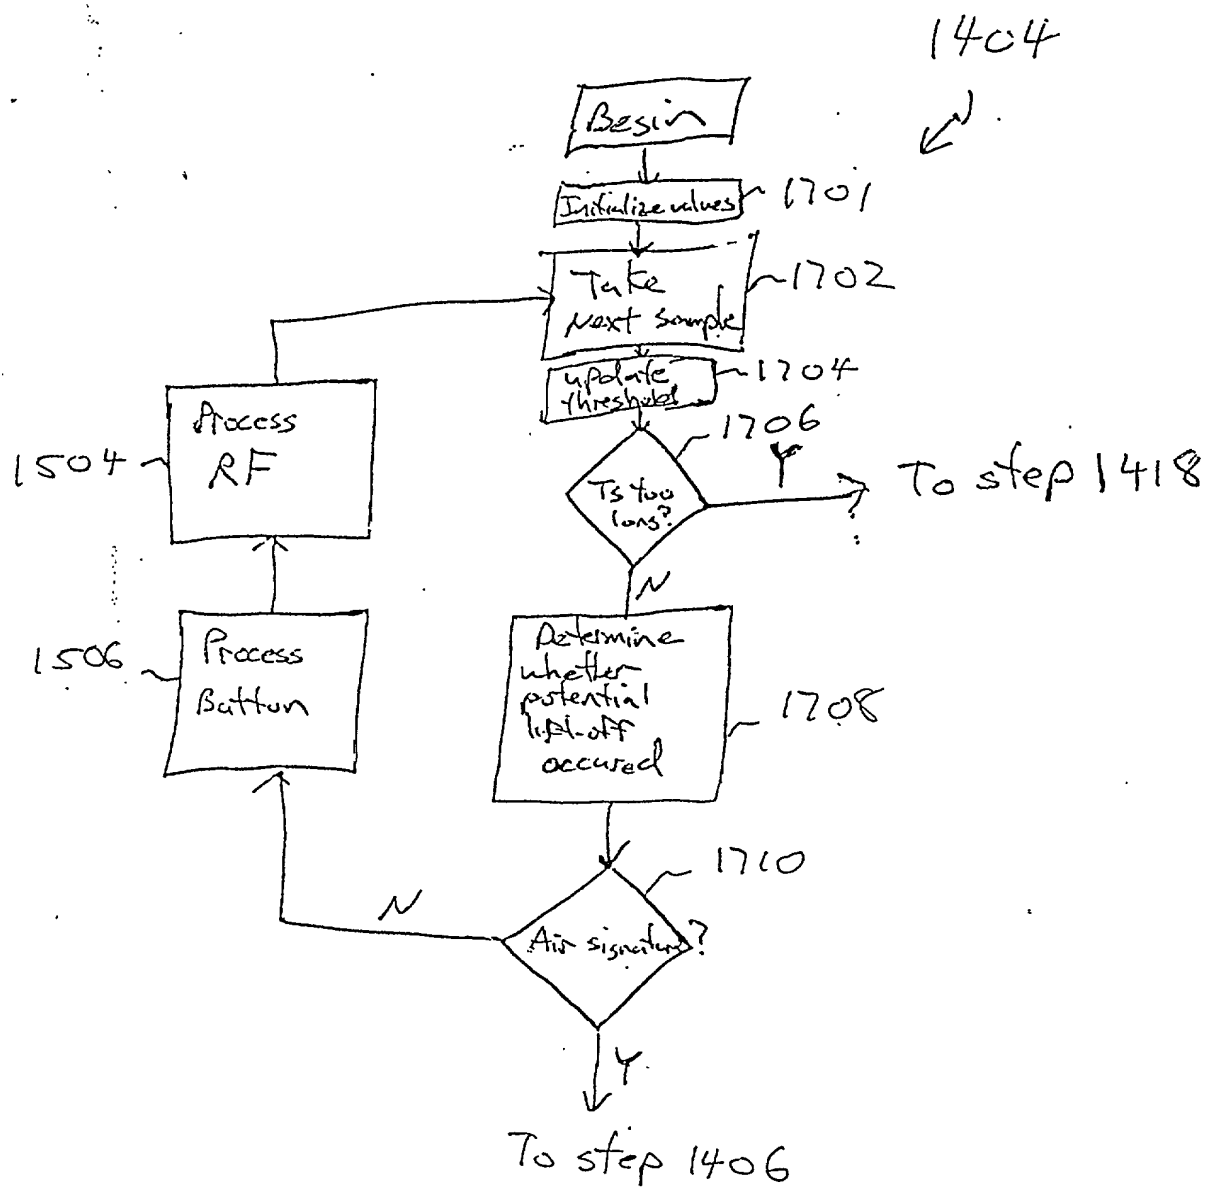 1404
Begin
Initialize values
1701
Take
Next Sample
1702
update
threshold
1704
1706
Ts too
long?
Y
To step 1418
N
Process
RF
1504
Process
Button
1506
Determine
whether
potential
lift-off
occured
1708
1710
Air signature?
N
Y
To step 1406